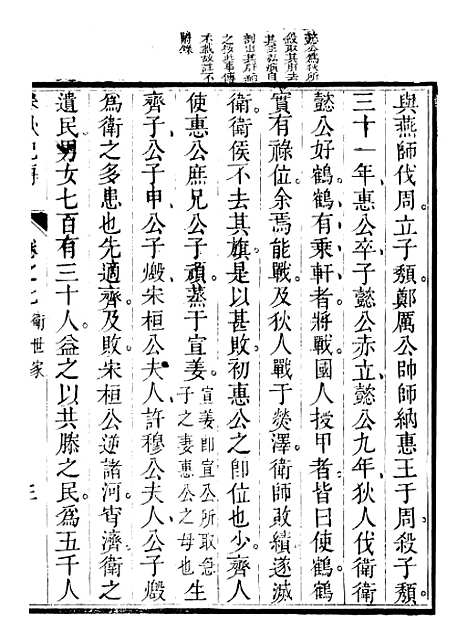 懿公爲狄所
殺取其肝去
其
之
不載故
附錄
與燕師伐周立子頹鄭厲公帥師納惠王于周殺子頹
三十一年惠公卒子懿公赤立懿公九年狄人伐衛衛
懿公好鶴鶴有乘軒者將戰國人授甲者皆曰使鶴鶴
實有祿位余焉能戰及狄人戰于熒澤衛師敗績遂滅
衛衛侯不去其旗是以甚敗初惠公之卽位也少齊人
使惠公庶兄公子頑蒸于宣姜宣姜卽宣公所取急子之妻惠公之母也生
齊子公子申公子燬宋桓公夫人許穆公夫人公子燬
爲衛之多患也先適齊及敗宋桓公逆諸河宵濟衛之
遺民男女七百有三十人益之以共滕之民爲五千人
卷之七 衛世家 三